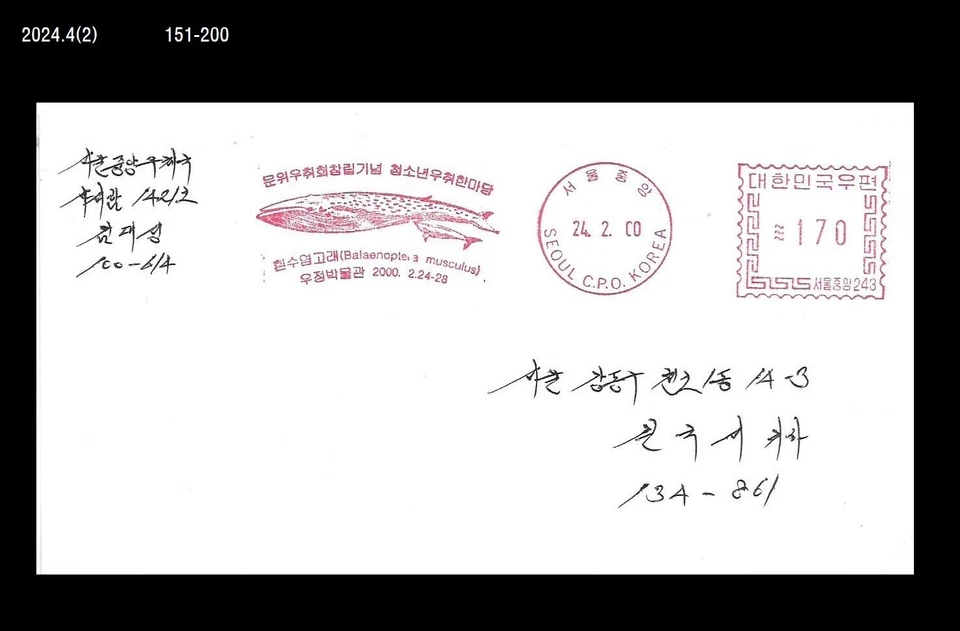 2024.4(2) 151-200
서울중앙우체국
사서함 1421호
김대성
100-614
문위우취회창립기념 청소년우취한마당
흰수염고래(Balaenoptera musculus)
우정박물관 2000. 2.24-28
서울중앙
24. 2. 00
SEOUL C.P.O. KOREA
대한민국우편
170
서울중앙 243
서울 강동구 천호1동 14-3
귀하
134-861